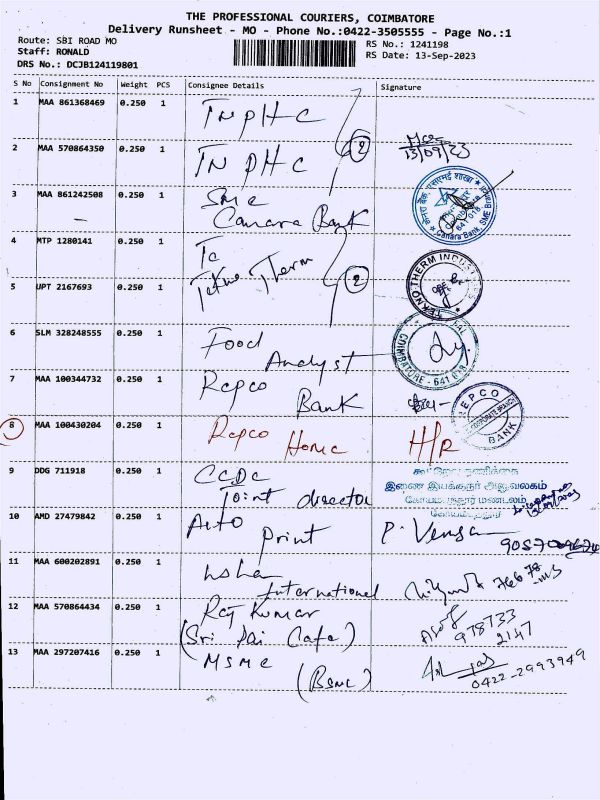 THE PROFESSIONAL COURIERS, COIMBATORE
Delivery Runsheet - MO - Phone No.:0422-3505555 - Page No.:1
Route: SBI ROAD MO
Staff: RONALD
DRS No.: DCJB124119801
RS No.: 1241198
RS Date: 13-Sep-2023
S No Consignment No Weight PCS Consignee Details Signature
1 MAA 861368469 0.250 1 TNPHC
2 MAA 570864350 0.250 1 TNPHC 2
13/09/23
3 MAA 861242508 0.250 1 SME
Canara Bank
Canara Bank, SME Branch
641 018
4 MTP 1280141 0.250 1 Tc
Tekno Therm 2
TEKNO THERM INDUSTRIES
5 UPT 2167693 0.250 1
6 SLM 328248555 0.250 1 Food
Analyst
COIMBATORE - 641 018
7 MAA 100344732 0.250 1 Repco
Bank
REPCO BANK
CORPORATE BRANCH
8 MAA 100430204 0.250 1 Repco Home H/R
9 DDG 711918 0.250 1 CCDC
Joint director
இணை இயக்குநர் அலுவலகம்
10 AMD 27479842 0.250 1 Auto
Print
11 MAA 600202891 0.250 1 Usha
International
12 MAA 570864434 0.250 1 Raj Kumar
(Sri Sai Cafe)
978733
2147
13 MAA 297207416 0.250 1 MSME
(BSNL)
0422-2993949